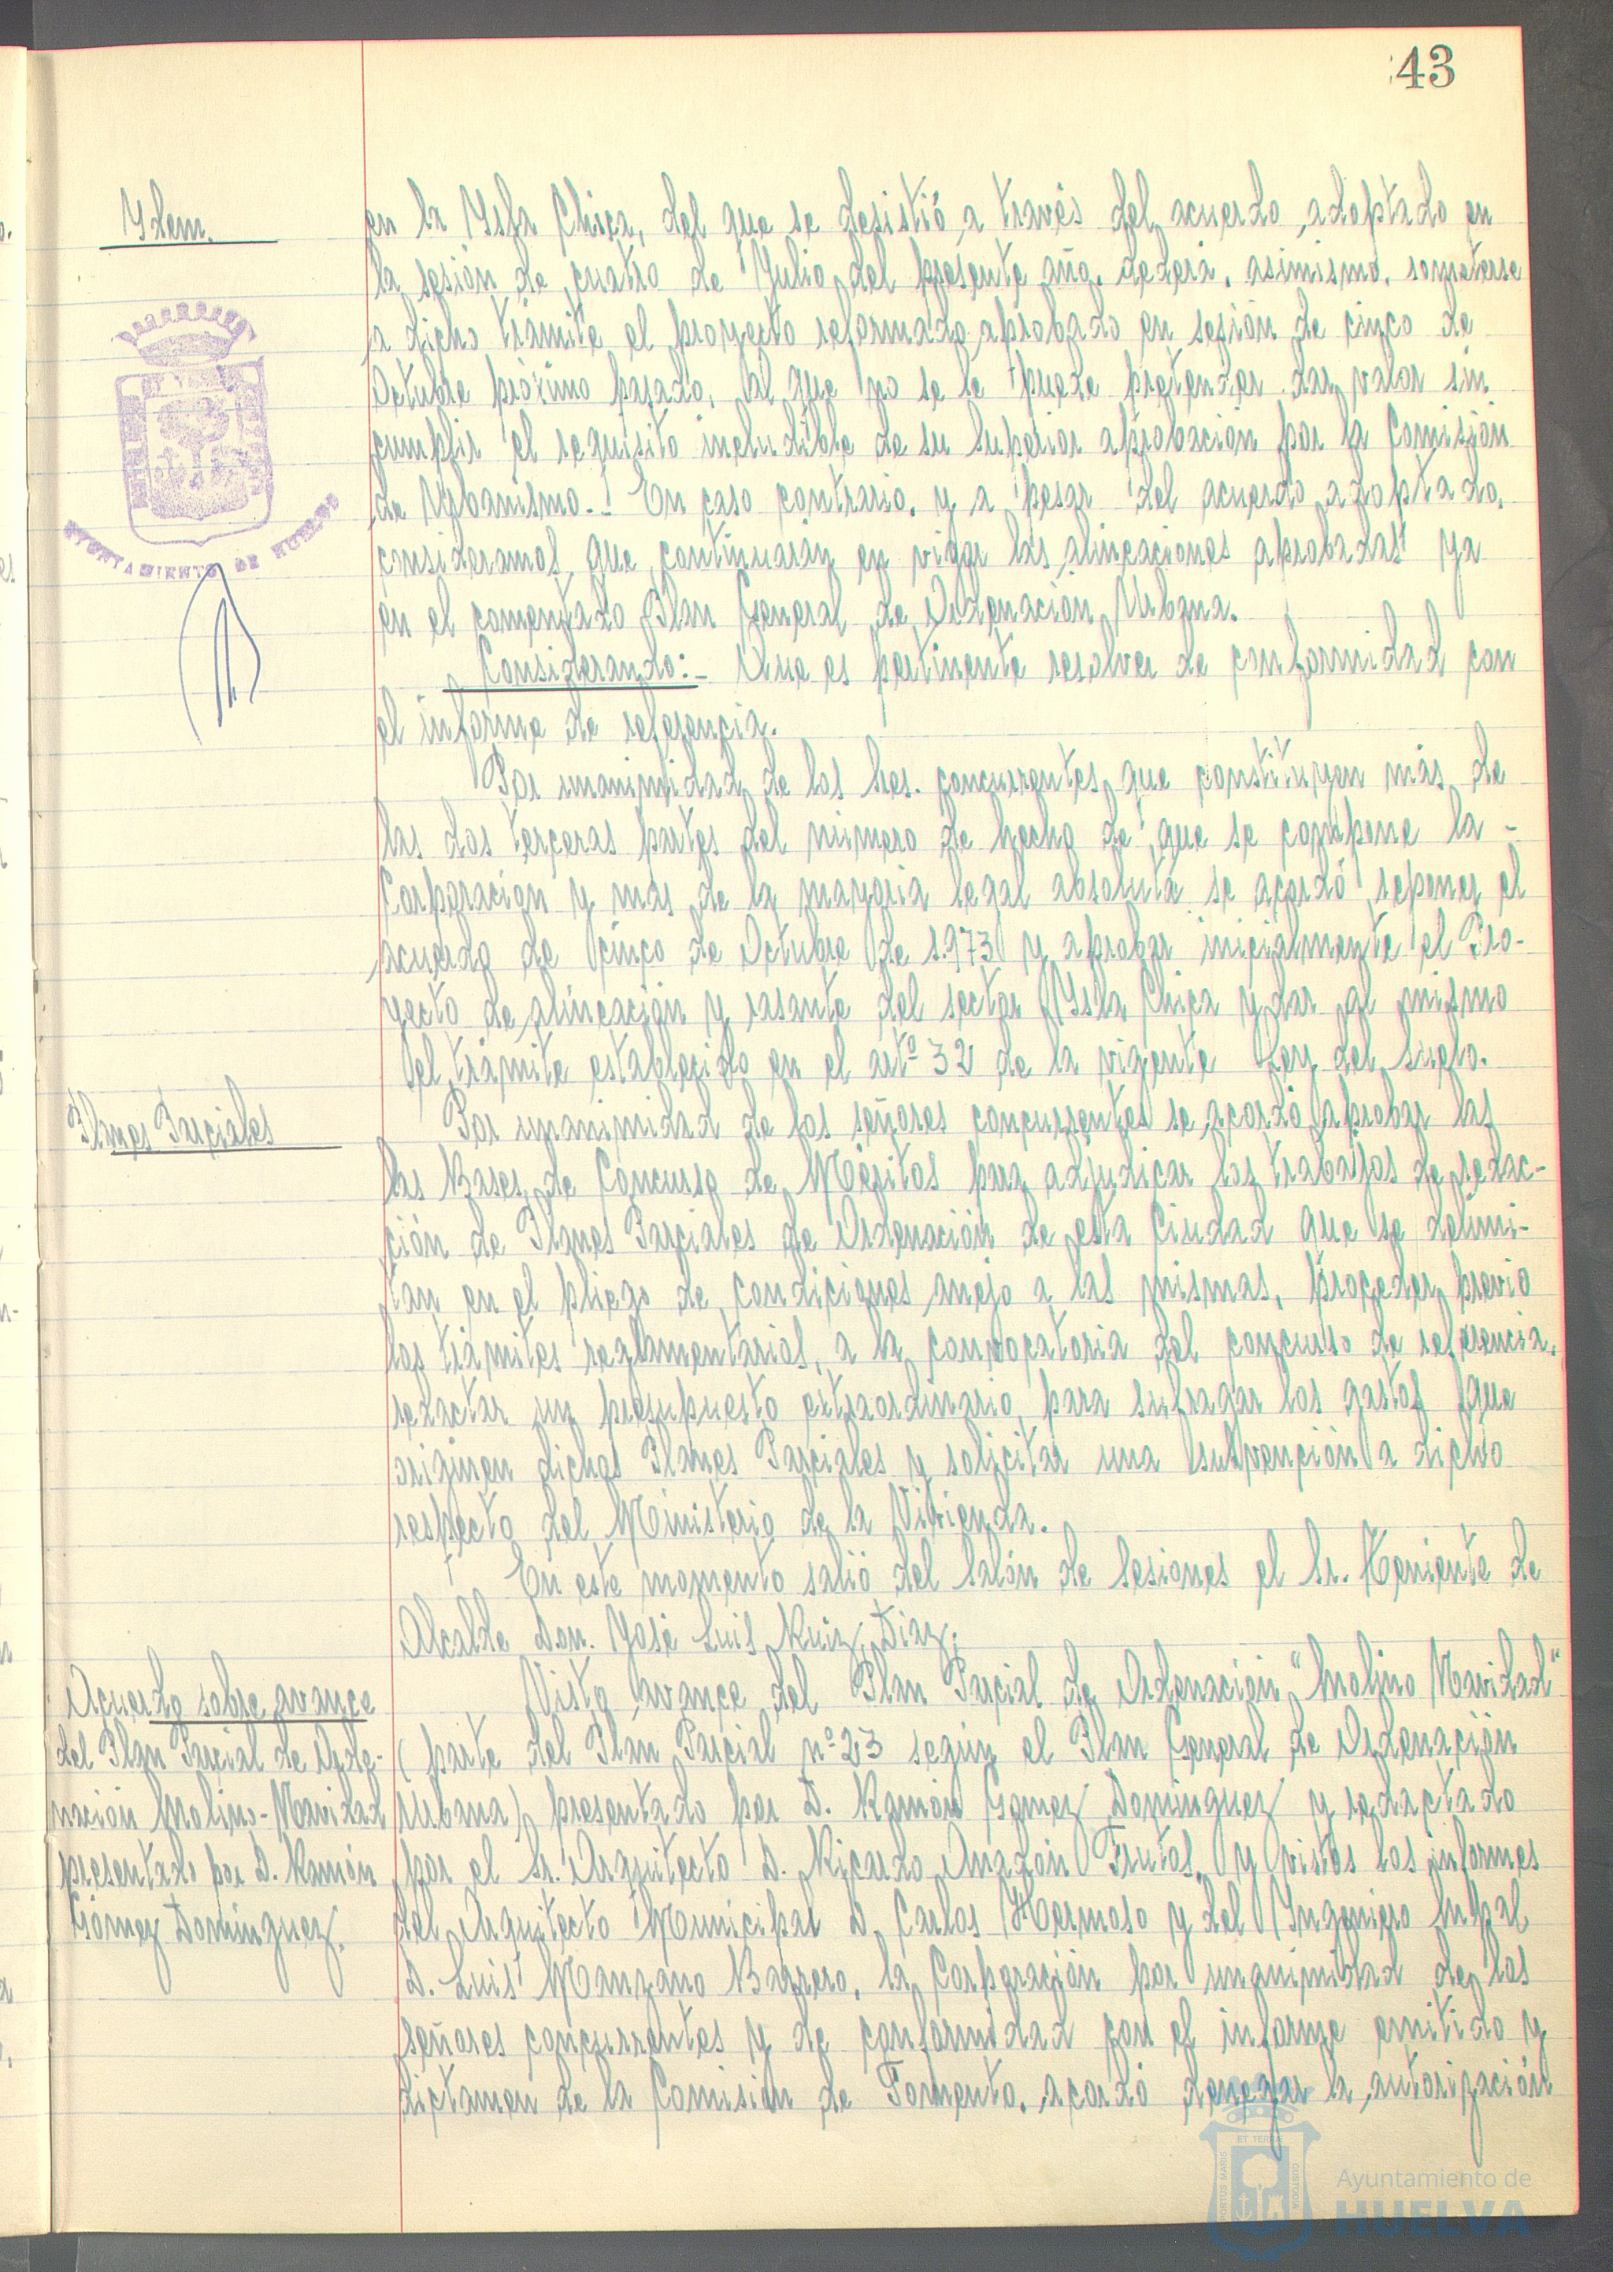 43
Ydem.
en la Ysla Chica, del que se desistió a través del acuerdo adoptado en
la sesión de cuatro de Yulio del presente año, deberá, asimismo, someterse
a dicho trámite el proyecto reformado aprobado en sesión de cinco de
Octubre próximo pasado, al que no se le puede pretender dar valor sin
cumplir el requisito ineludible de su superior aprobación por la Comisión
de Urbanismo.- En caso contrario, y a pesar del acuerdo adoptado,
consideramos que continuarán en vigor las alineaciones aprobadas ya
en el comentado Plan General de Ordenación Urbana.
Considerando:- Que es pertinente resolver de conformidad con
el informe de referencia.
Por unanimidad de los Sres. concurrentes, que constituyen más de
las dos terceras partes del número de hecho de que se compone la -
Corporación y más de la mayoría legal absoluta se acordó reponer el
acuerdo de cinco de Octubre de 1.973 y aprobar inicialmente el Pro-
yecto de alineación y rasante del sector Ysla Chica y dar al mismo
el trámite establecido en el artº 32 de la vigente Ley del Suelo.
Planes Parciales
Por unanimidad de los señores concurrentes se acordó aprobar las
las Bases de Concurso de Méritos para adjudicar los trabajos de redac-
ción de Planes Parciales de Ordenación de esta Ciudad que se delimi-
tan en el pliego de condiciones anejo a las mismas, proceder, previo
los trámites reglamentarios, a la convocatoria del concurso de referencia,
redactar un presupuesto extraordinario para sufragar los gastos que
originen dichos Planes Parciales y solicitar una subvención a dicho
respecto del Ministerio de la Vivienda.
En este momento salió del Salón de Sesiones el Sr. Teniente de
Alcalde Don. Yosé Luis Ruiz Diaz.
Acuerdo sobre avance
del Plan Parcial de Orde-
nación Molino-Navidad
presentado por D. Ramón
Gómez Domínguez.
Visto avance del Plan Parcial de Ordenación "Molino Navidad"
(parte del Plan Parcial nº 23 según el Plan General de Ordenación
Urbana) presentado por D. Ramón Gomez Dominguez y redactado
por el Sr. Arquitecto D. Ricardo Anadón Frutos, y vistos los informes
del Arquitecto Municipal D. Carlos Hermoso y del Yngeniero Mpal
D. Luis Manzano Barrero, la Corporación por unanimidad de los
señores concurrentes y de conformidad con el informe emitido y
dictamen de la Comisión de Fomento, acordó denegar la autorización
AYUNTAMIENTO DE HUELVA
PORTUS MARIS ET TERRAE CUSTODIA
Ayuntamiento de
HUELVA